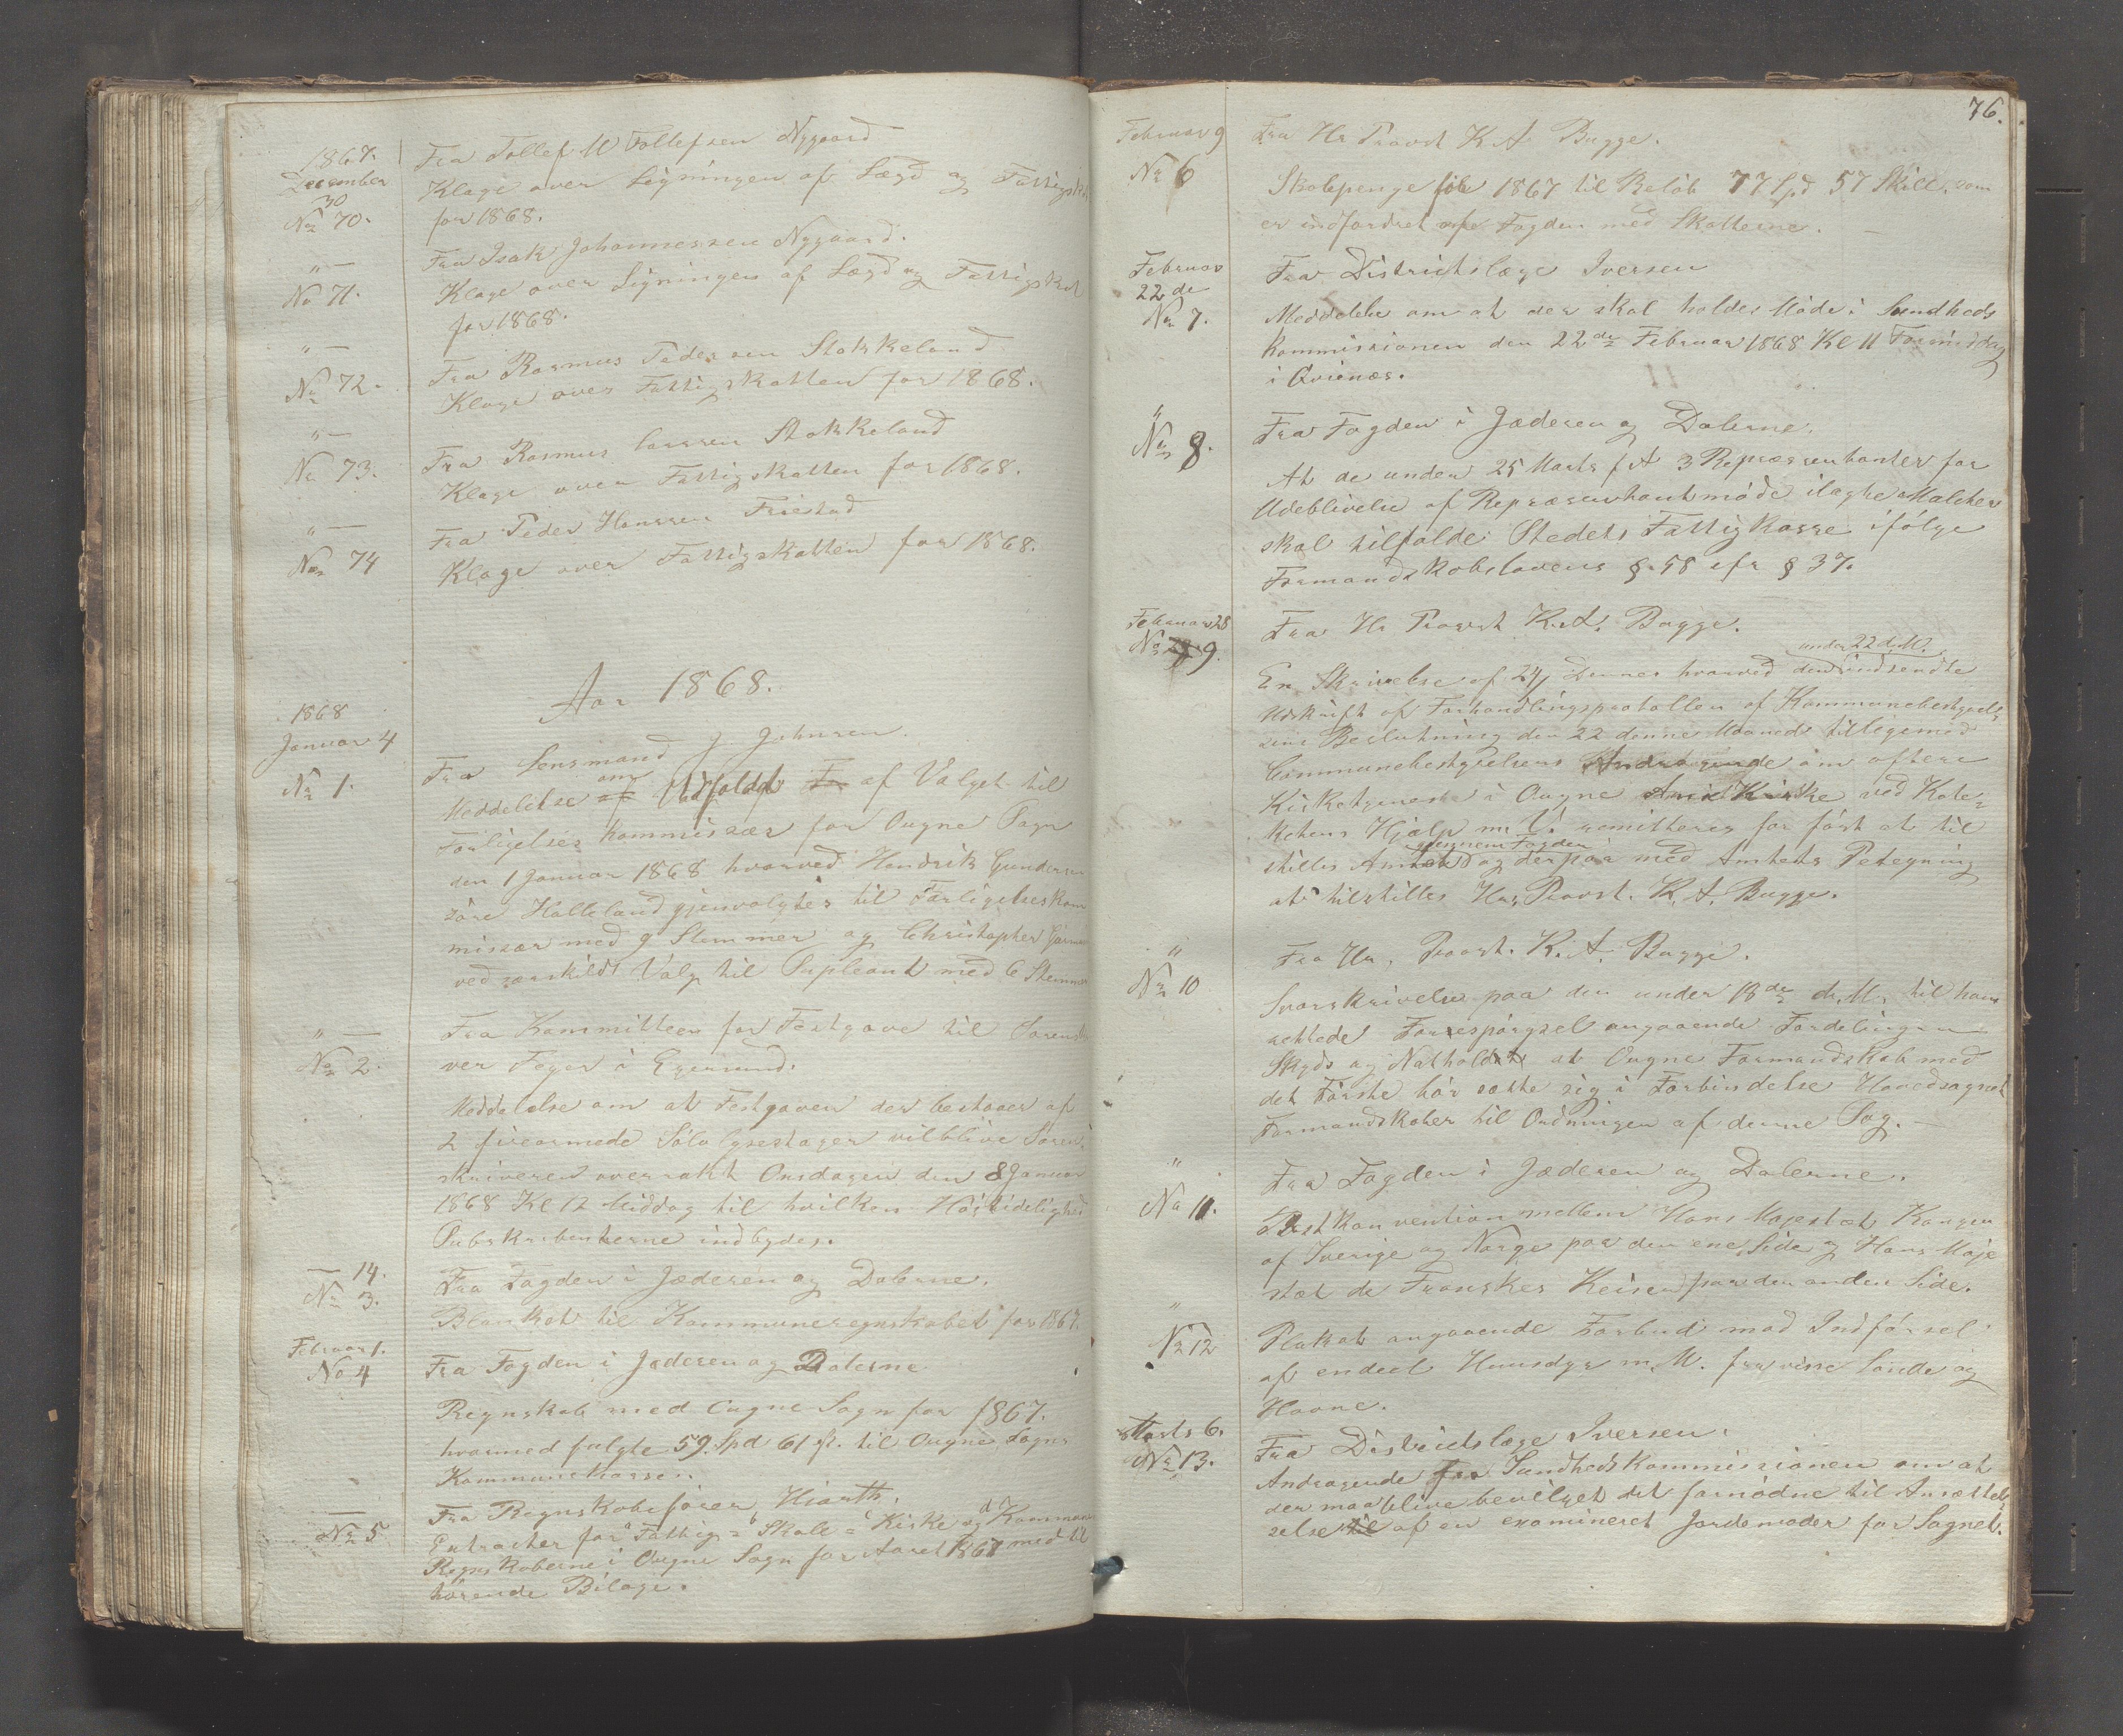 1867.
December
30
No 70.
Fra Tollef M Tollefsen Nygaard
Klage over Ligningen af Lægd og Fattigskat
for 1868.
" —
No 71.
Fra Isak Johannessen Nygaard.
Klage over Ligningen af Lægd og Fattigskat
for 1868.
" —
No 72.
Fra Rasmus Pedersen Stokkeland
Klage over Fattigskatten for 1868.
" —
No 73.
Fra Rasmus Larssen Stokkeland
Klage over Fattigskatten for 1868.
" —
No 74
Fra Peder Hanssen Friestad
Klage over Fattigskatten for 1868.
Aar 1868.
1868
Januar 4
No 1.
Fra Lensmand J Johnsen.
Meddelelse af om Udfaldet Fr af Valget til
Forligelses Kommissær for Ougne Sogn
den 1 Januar 1868 hvorved Hendrik Gunder
søre Halleland gjenvalgtes til Forligelseskom
missær med 9 Stemmer og Christopher
ved særskildt Valg til Supleant med 6 Stemmer
" —
No 2.
Fra Kommitteen for Festgave til Sorenskri
ver Feyer i Egersund.
Meddelelse om at Festgaven der bestaaer af
2 firearmede Sölvlysestager vil blive Soren
skriveren overrakt Onsdagen den 8 Januar
1868 Kl 12 Middag til hvilken Höitidelighed
Subskribenterne indbydes.
— 14.
No 3.
Fra Fogden i Jæderen og Dalerne.
Blanket til Kommuneregnskabet for 1867.
Februar 1.
No 4
Fra Fogden i Jæderen og Dalerne
Regnskab med Ougne Sogn for 1867.
hvormed fulgte 59 Spd 61 sk. til Ougne Sogns
Kommunekasse.
—
No 5
Fra Regnskabsförer Hiorth.
Extracter for Fattig= Skole= Kirke og Kommune
Regnskaberne i Ougne Sogn for Aaret 1867 med til
hörende Bilage.
76.
Februar 9
No 6
Fra Hr Provst K A Bugge.
Skolepenge for 1867 til Belöb 77 Spd 57 Skill. som
er indfordret af Fogden med Skatterne. —
Februar
22de
No 7.
Fra Distriktslæge Iversen
Meddelelse om at der skal holdes Möde i Sundheds
Kommissionen den 22de Februar 1868 Kl 11 Formiddag
i Qvienæs.
"
No 8.
Fra Fogden i Jæderen og Dalerne.
At de under 25 Marts f A 3 Repræsentanter for
Udeblivelse af Repræsentantmöde ilagte Mulcter
skal tilfalde Stedets Fattigkasse ifölge
Formandskabslovens § 58 cfr § 37.
Februar 28
No 9.
Fra Hr Provst K. A. Bugge.
under 22 d. M.
En Skrivelse af 24 Dennes hvorved den indsendte
Udskrift af Forhandlingsprotollen af Kommunebestyrel
sens Beslutning den 22 denne Maaned tilligemed
Communebestyrelsens Andragende om oftere
Kirketjeneste i Ougne Kirke ved Kate=
ketens Hjælp m. V. remitteres for först at til
gjennem Fogden
stilles Amtet og derpaa med Amtets Paategning
at tilstilles Hr. Provst. K. A. Bugge.
"
No 10
Fra Hr. Provst. K. A. Bugge.
Svarskrivelse paa den under 18de d. M. til ham
rettede Forespörgsel angaaende Fordelingen
Skyds og Nathold at Ougne Formandskab med
det Förste bör sætte sig i Forbindelse Hovedsognets
Formandskaber til Ordningen af denne Sag. —
"
No 11.
Fra Fogden i Jæderen og Dalerne.
Postkonvention mellem Hans Majestæt Kongen
af Sverige og Norge paa den ene Side og Hans Maje
stæt de Franskes Keiser paa den anden Side.
"
No 12
Plakat angaaende Forbud mod Indförsel
af endeel Huusdyr m. M. fra visse Lande og
Havne.
Marts 6.
No 13.
Fra Distriktslæge Iversen.
Andragende fra Sundhedskommissionen om at
der maa blive bevilget det fornödne til Ansættel
selse til af en examineret Jordemoder for Sognet.